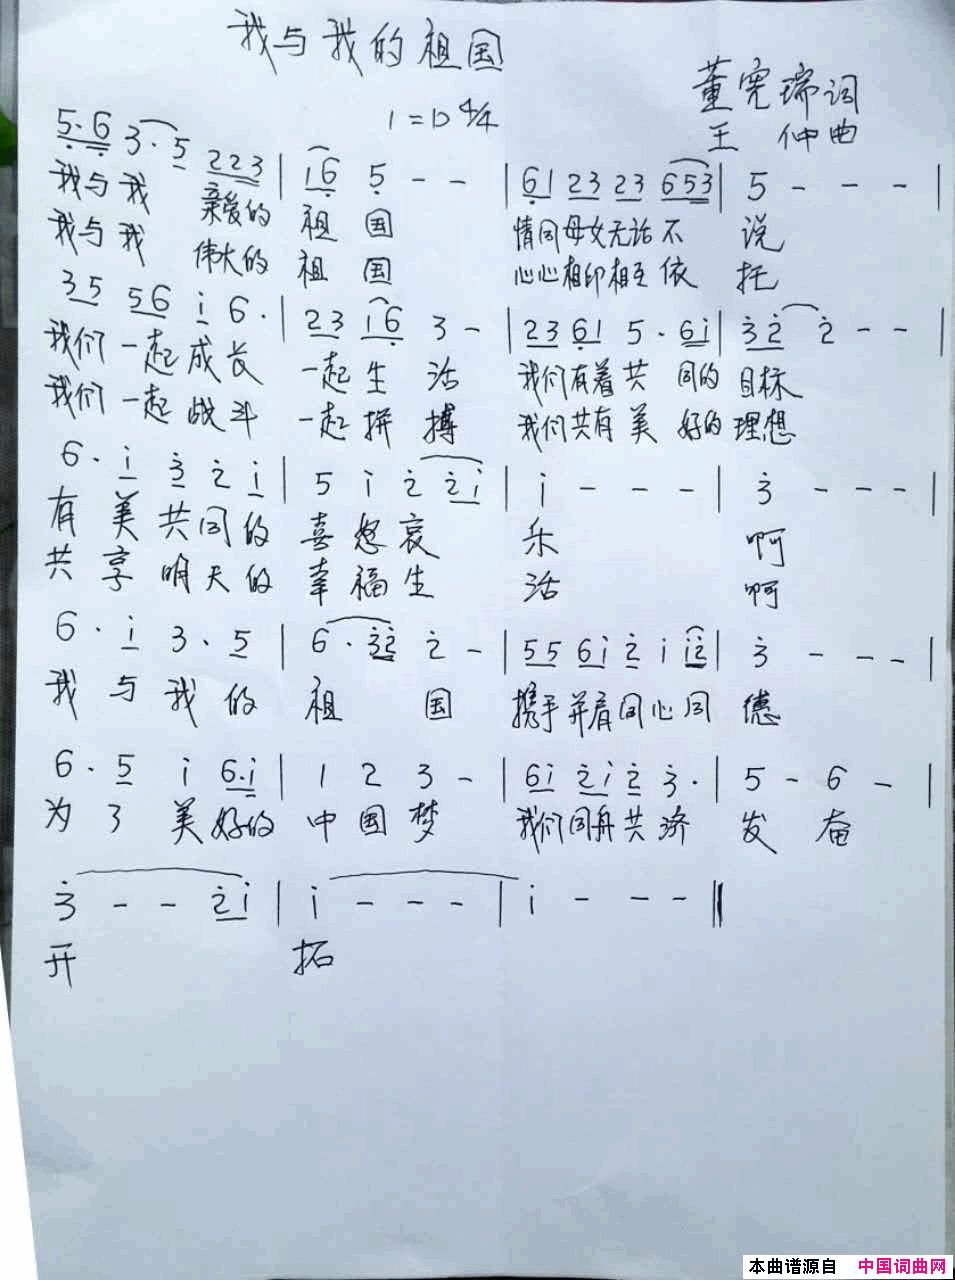 我与我的祖国
董宪瑞词
1=D 4/4
王 仲曲
5·6 3·5 223 | i6 5 - - | 61 23 23 653 | 5 - - - |
我与我 亲爱的 祖 国 情同母女无话不 说
我与我 伟大的 祖 国 心心相印相互依 托
35 56 i 6· | 23 i6 3 - | 2361 5·6i | 3̇2̇ 2̇ - - |
我们一起成长 一起生活 我们有着共同的目标
我们一起战斗 一起拼搏 我们共有美好的理想
6· i 3̇ 2̇ i | 5 i 2̇ 2̇i | i - - - | 3̇ - - - |
有美共同的 喜怒哀 乐 啊
共享明天的 幸福生 活 啊
6· i 3·5 | 6·3̇2̇ 2̇ - | 55 6i 2̇ i i2̇ | 3̇ - - - |
我与我的 祖 国 携手并肩同心同 德
6·5 i 6·i | 1 2 3 - | 6i 2̇i 2̇ 3̇· | 5 - 6 - |
为了美好的 中国梦 我们同舟共济 发 奋
3̇ - - 2̇i | i - - - | i - - - ‖
开 拓
本曲谱源自 中国词曲网